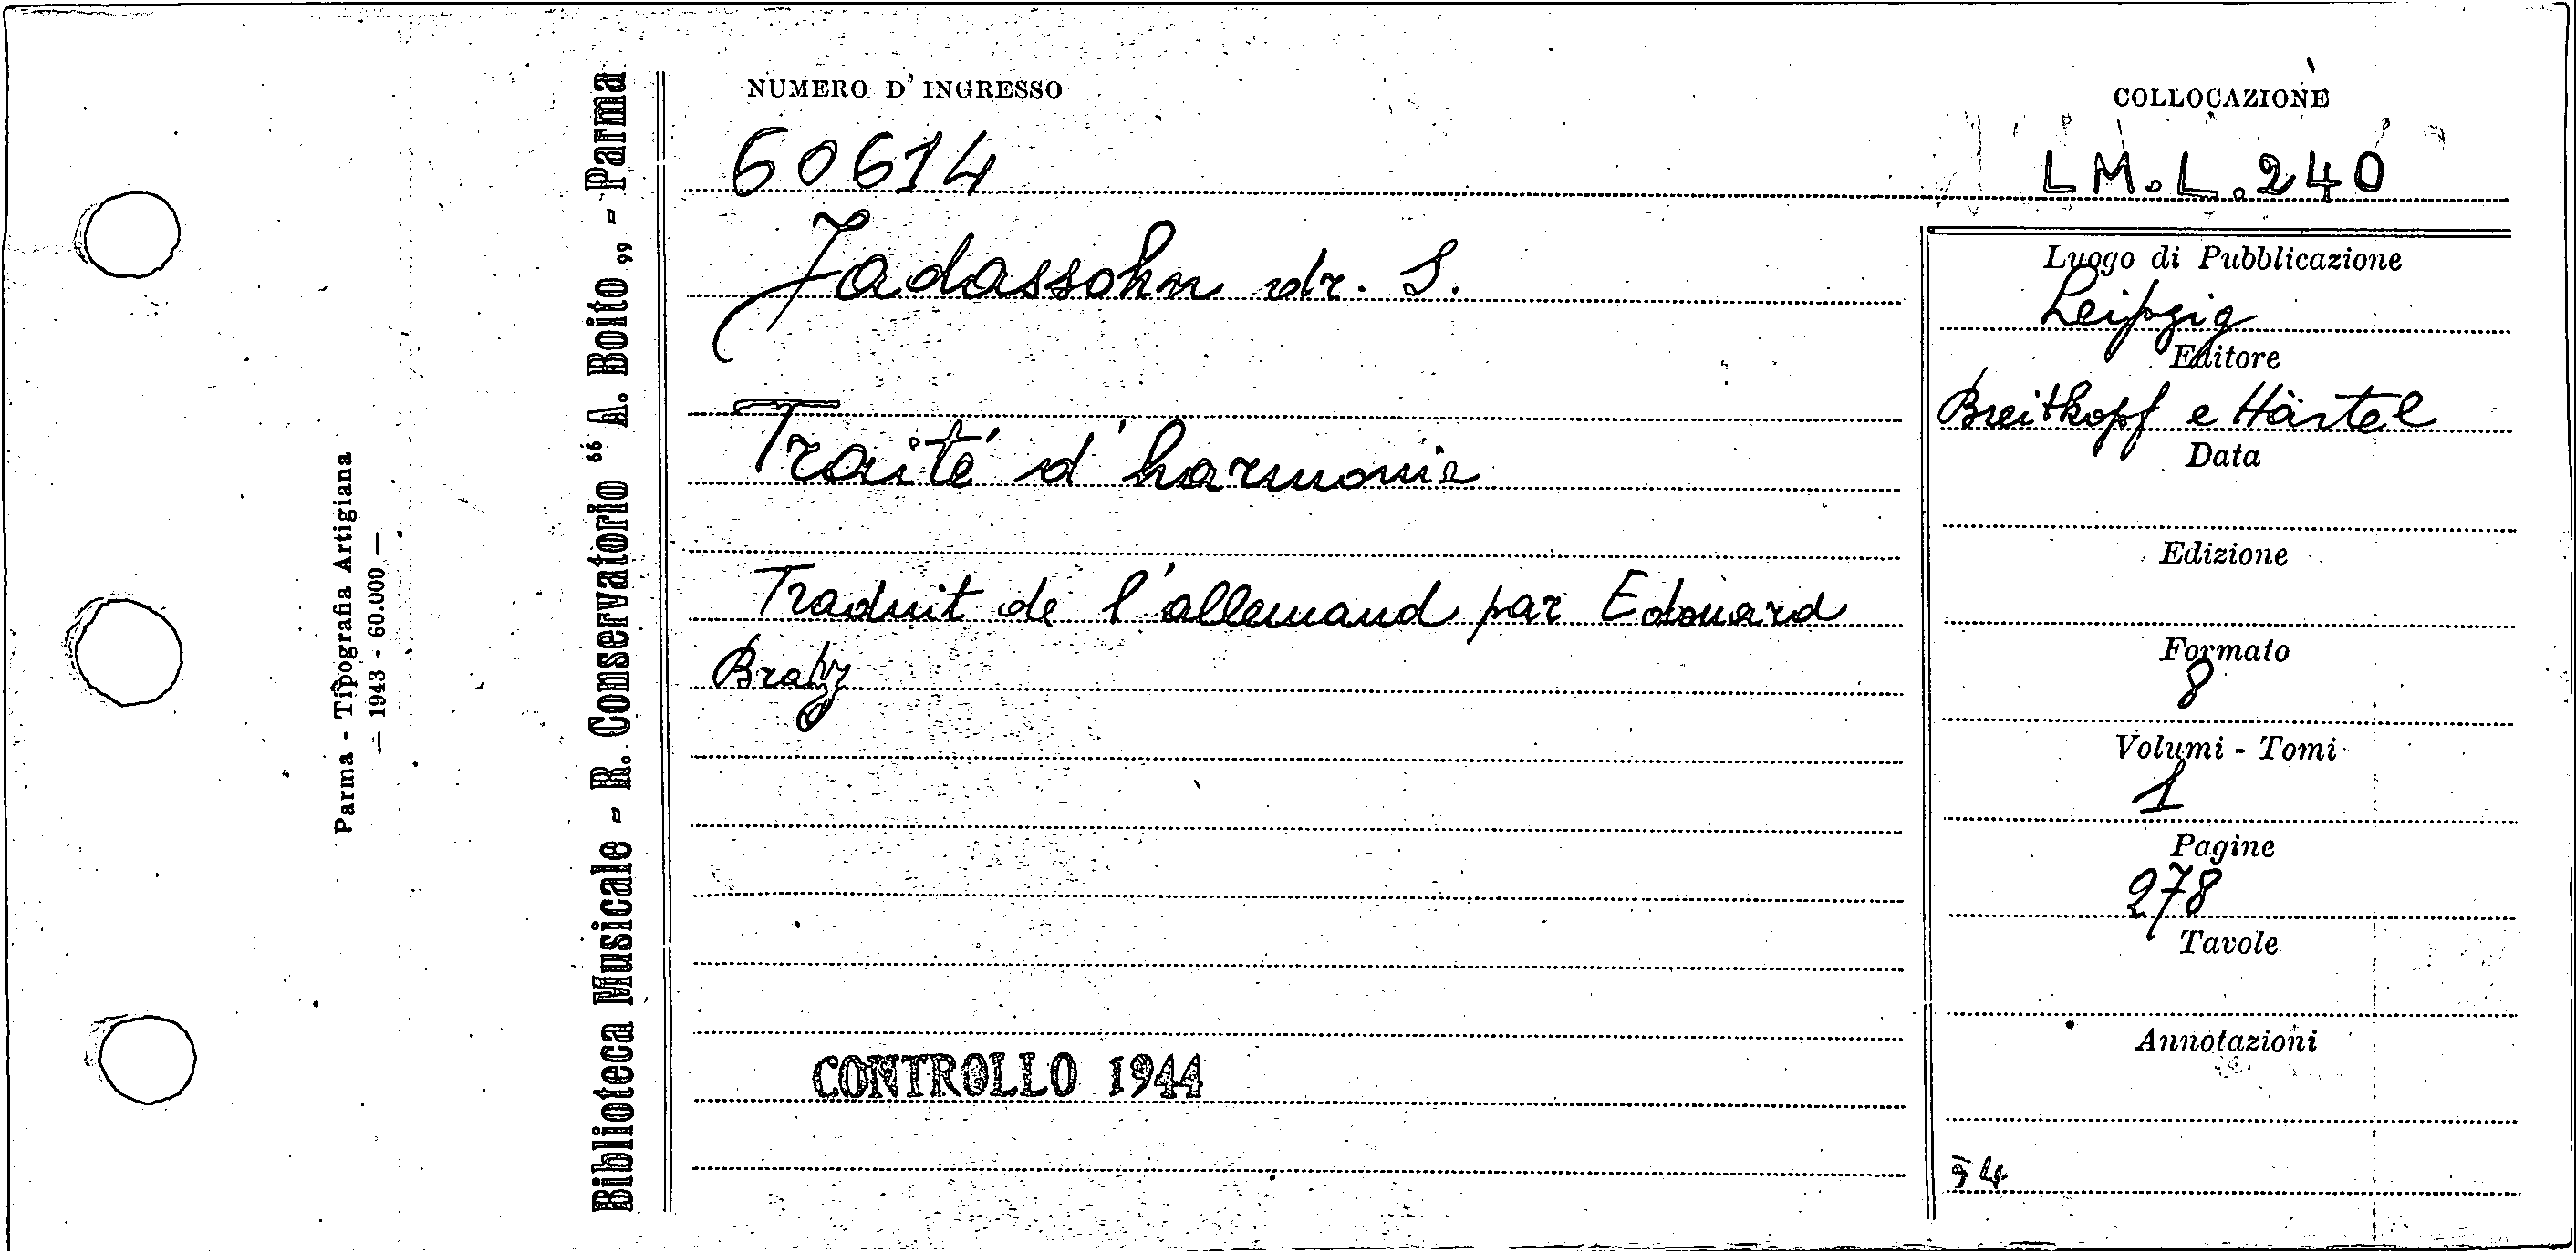 NUMERO D' INGRESSO
60614
COLLOCAZIONE
LM.L.240
Jadassohn dr. S.
Traité d'harmonie
Traduit de l'allemand par Edouard
Luogo di Pubblicazione
Leipzig
Editore
Breitkopf e Härtel
Data
Edizione
Formato
8
Volumi - Tomi
1
Pagine
278
Tavole
Annotazioni
CONTROLLO 1944
Biblioteca Musicale - R. Conservatorio “ A. Boito „ - Parma
Parma - Tipografia Artigiana
— 1943 - 60.000 —